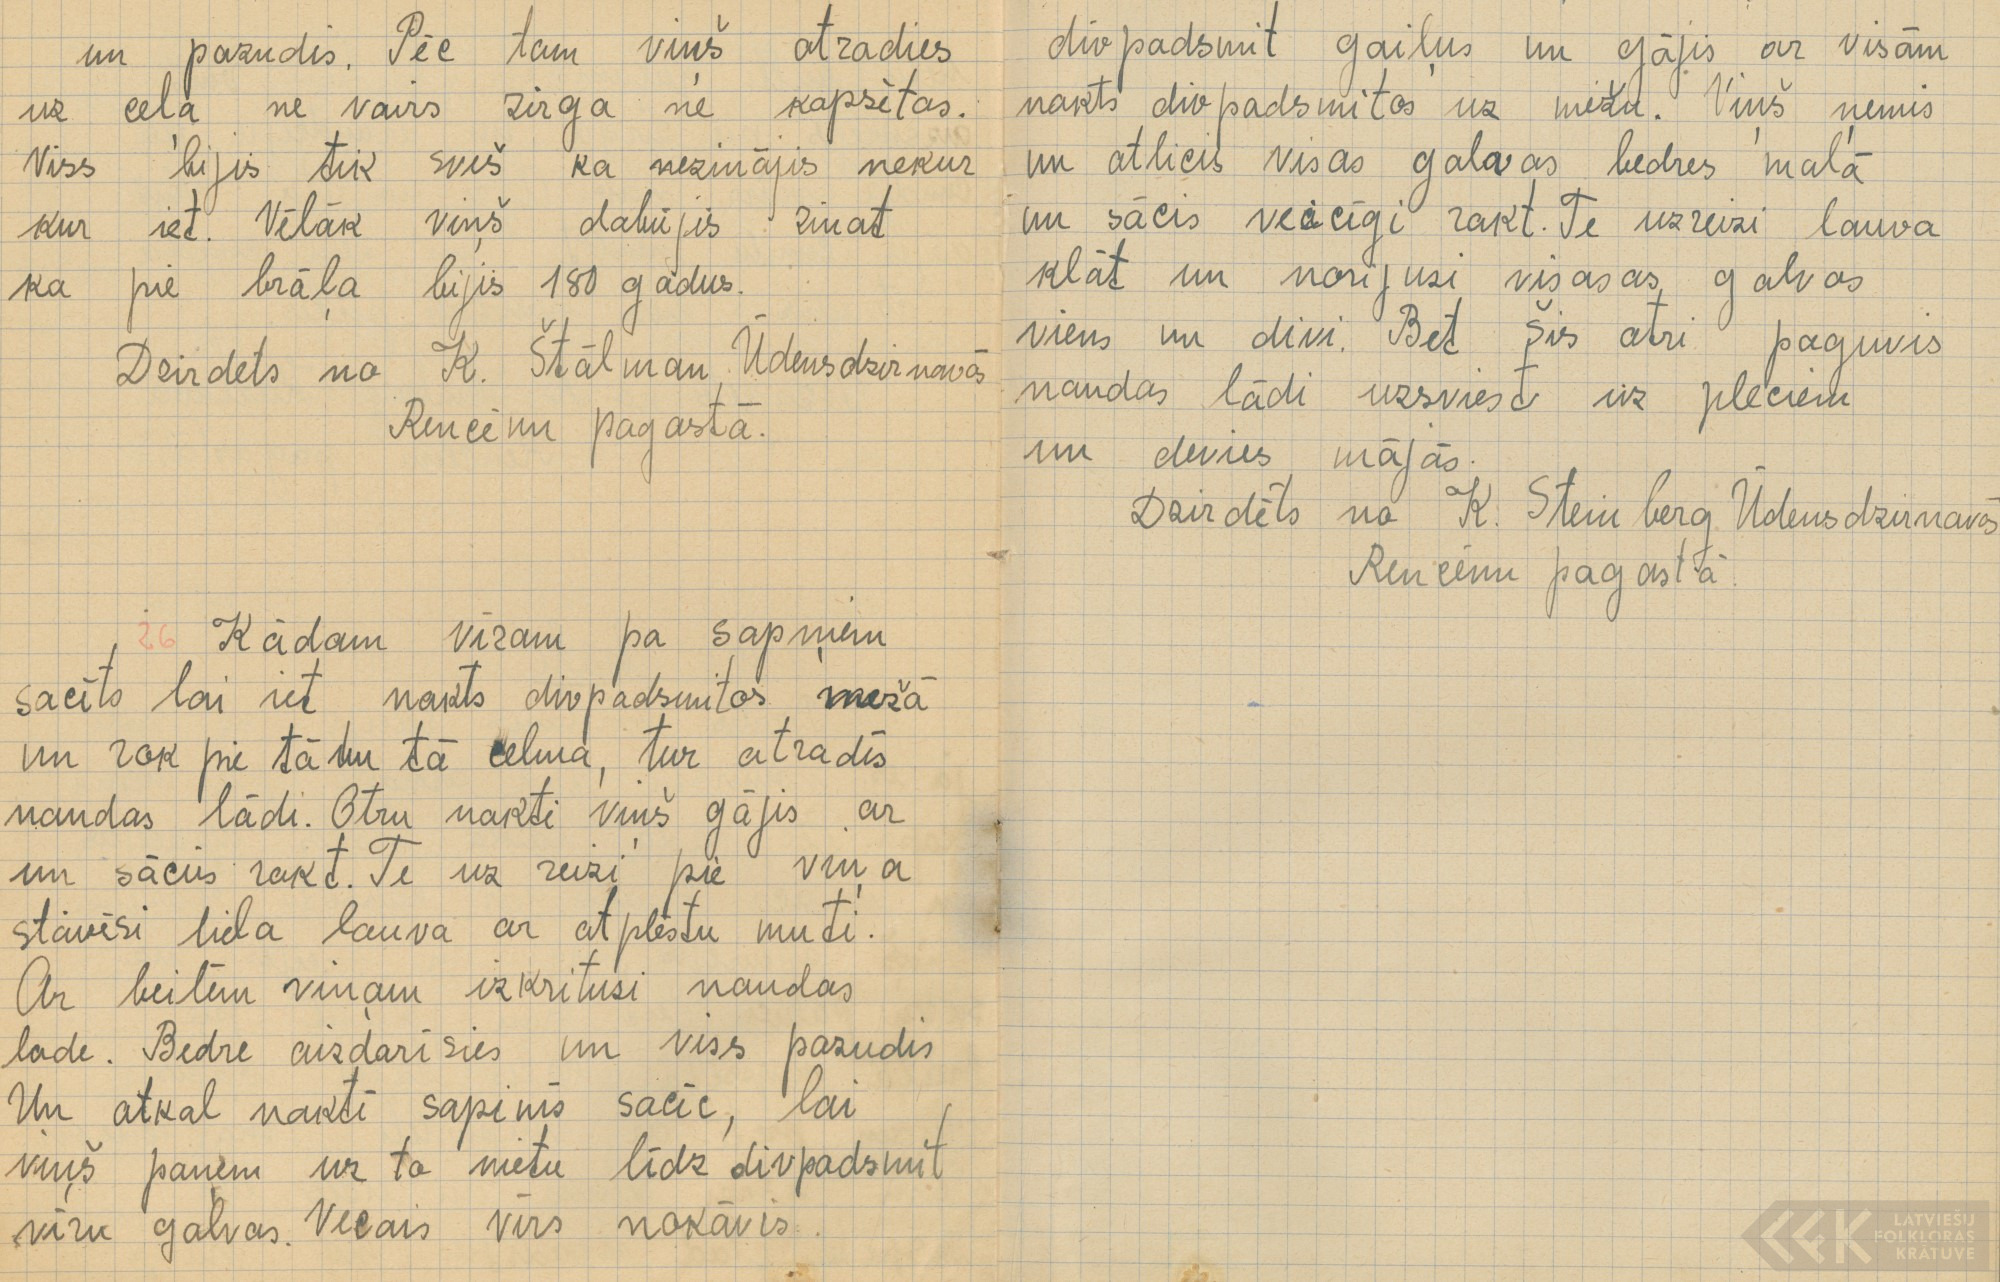 un pazudis. Pēc tam viņš atradies
uz ceļa ne vairs zirga ne kapsētas.
Viss bijis tik svešs ka nezinājis nekur
kur iet. Vēlāk viņš dabūjis zināt
ka pie brāļa bijis 180 gadus.
Dzirdēts no K. Štālman, Ūdensdzirnavās
Rencēnu pagastā.
26 Kādam vīram pa sapņiem
sacīts lai iet nakts divpadsmitos mežā
un rok pie tā un tā celma, tur atradīs
naudas lādi. Otru nakti viņš gājis ar
un sācis rakt. Te uz reizi pie viņa
stāvēsi liela lauva ar atplēstu muti.
Ar beitēm viņam izkritusi naudas
lade. Bedre aizdarīsies un viss pazudis
Un atkal naktī sapinīs sacīc, lai
viņš paņem uz to vietu līdz divpadsmit
vīru galvas. Vecais vīrs nokāvis
divpadsmit gaiļus un gājis ar visām
nakts divpadsmitos uz mežu. Viņš ņemis
un atlicis visas galvas bedres malā
un sācis veicīgi rakt. Te uzreizi lauva
klāt un norijusi visasas galvas
viens un divi. Bet šis ātri paguvis
naudas lādi uzsviest uz pleciem
un devies mājās.
Dzirdēts no K. Steinberg Ūdensdzirnavās
Rencēnu pagastā.
LATVIEŠU
FOLKLORAS
KRĀTUVE